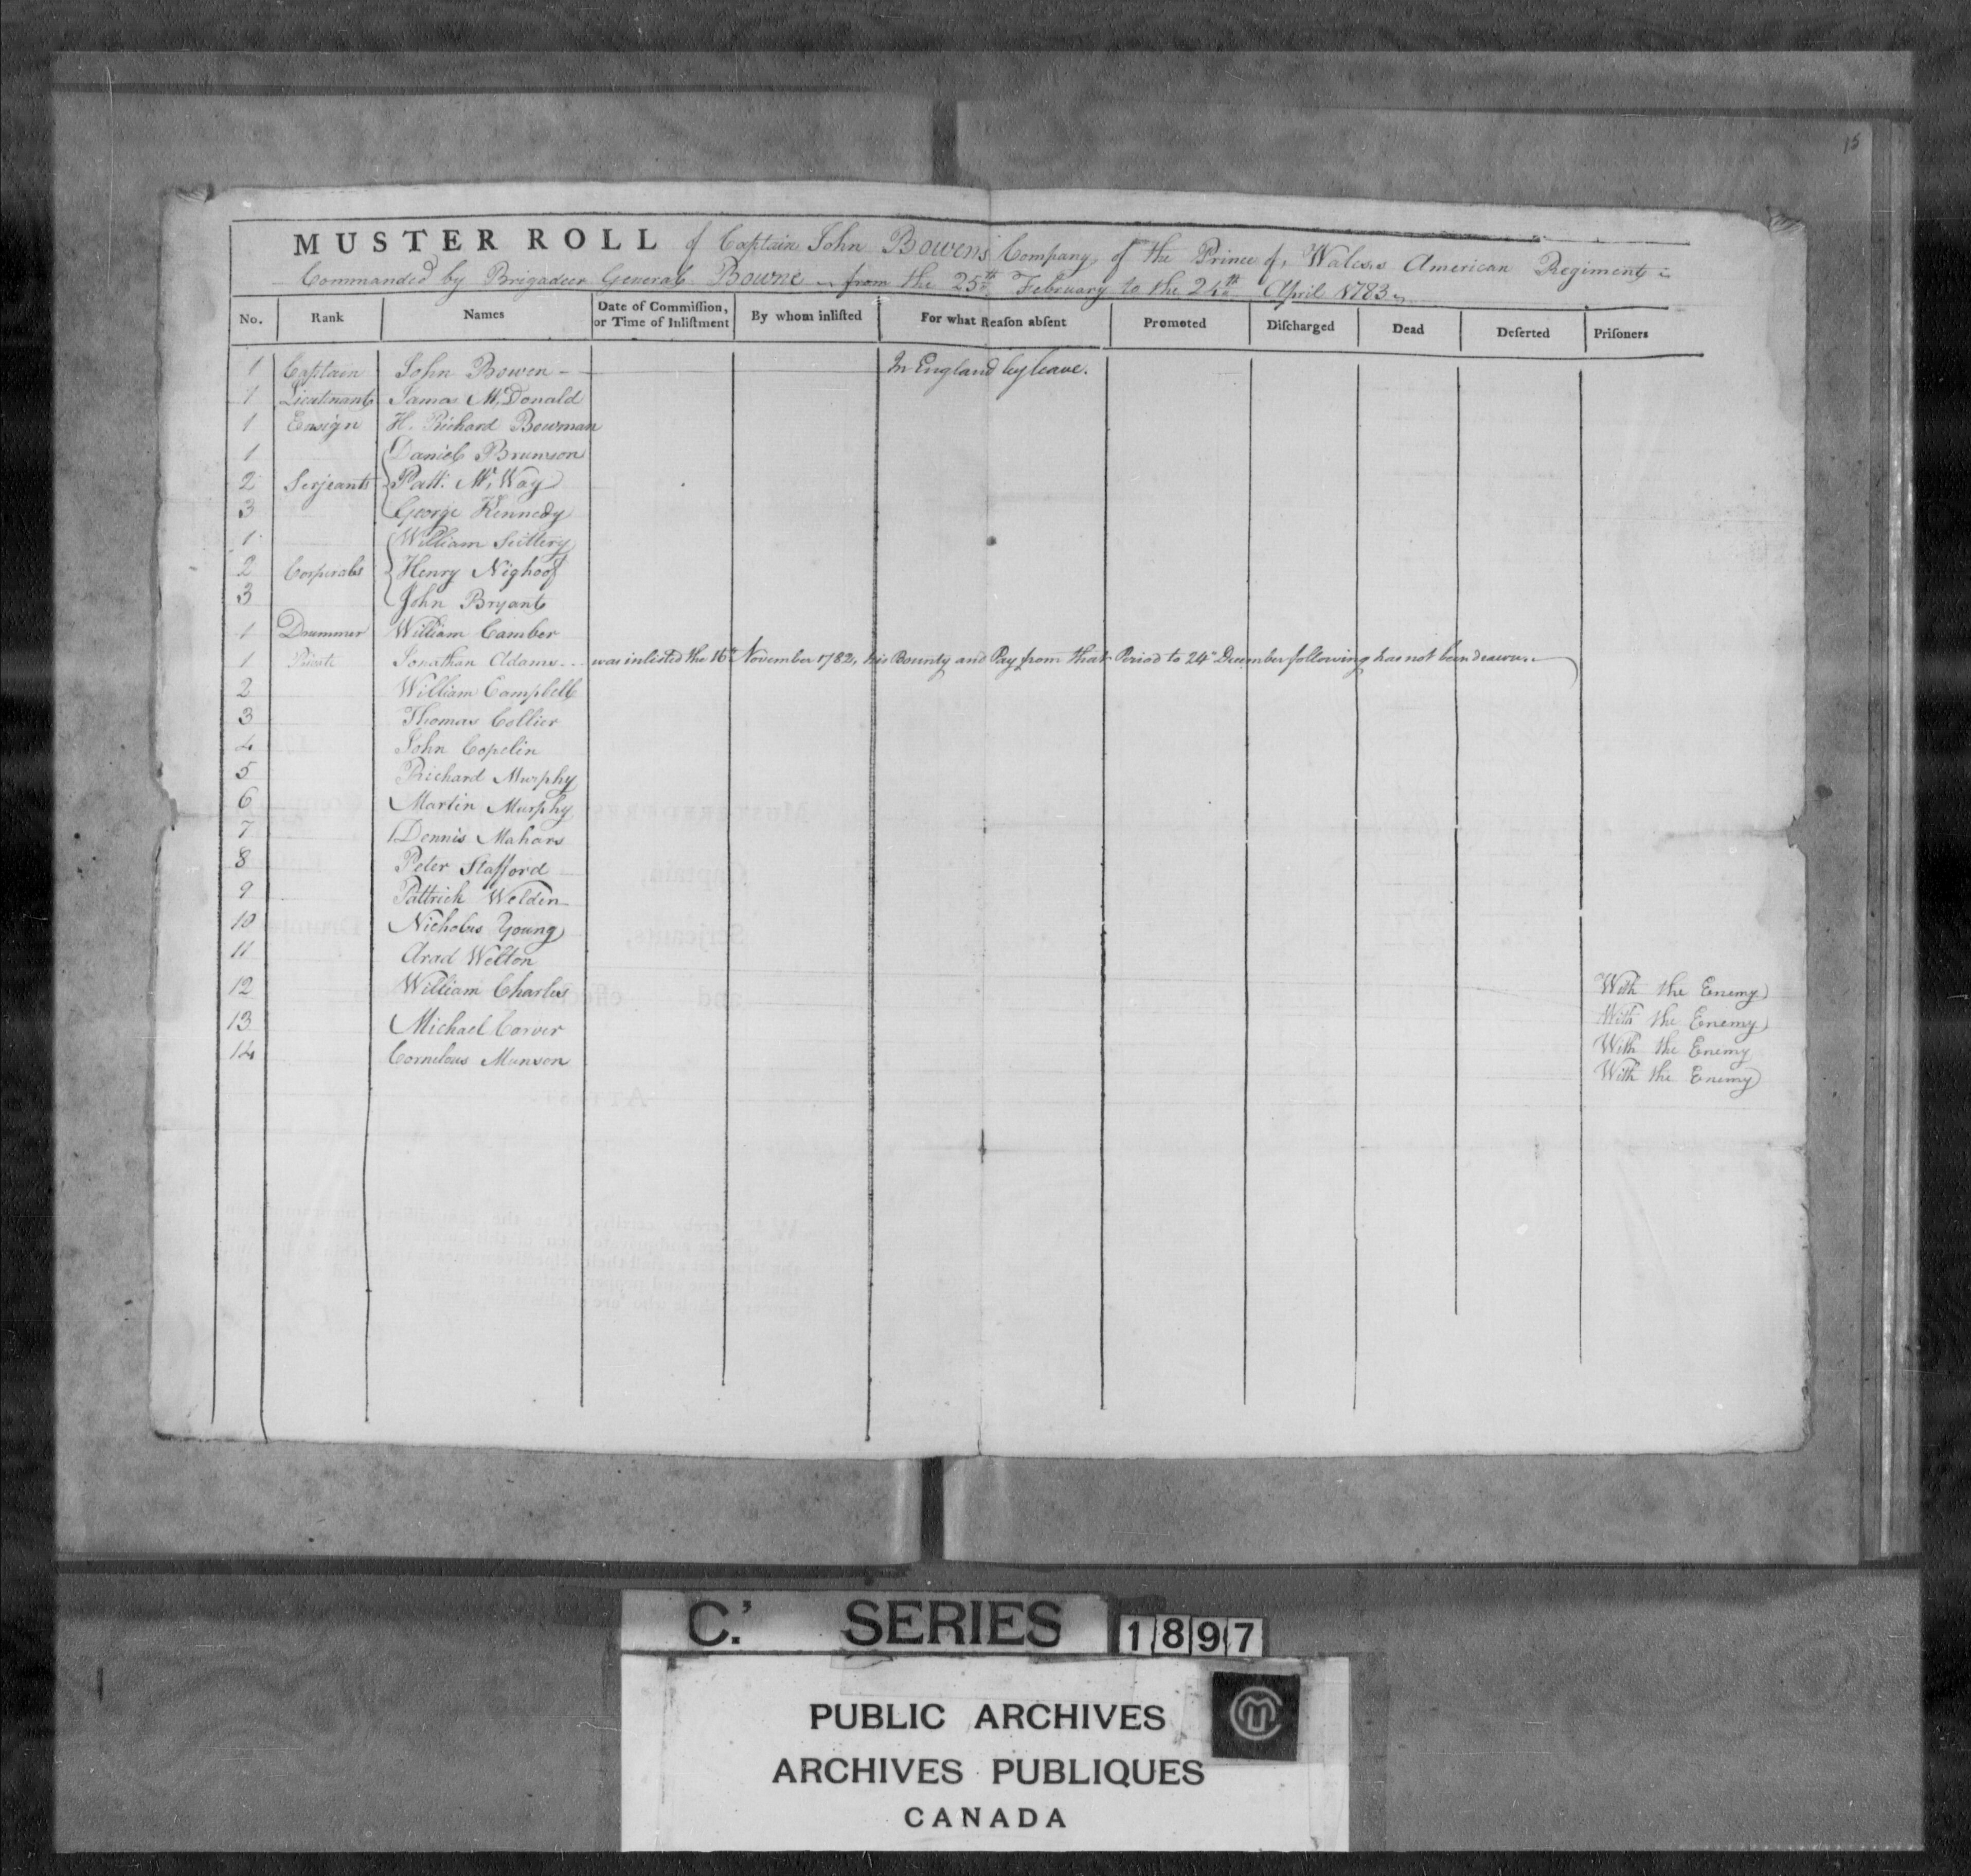 15
MUSTER ROLL of Captain John Bowen's Company of the Prince of Wales's American Regiment
Commanded by Brigadeer General Browne from the 25th February to the 24th April 1783
No. Rank Names Date of Commiſſion, or Time of Inliſtment By whom inliſted For what Reaſon abſent Promoted Diſcharged Dead Deſerted Priſoners
1 Captain John Bowen In England by leave.
1 Lieutenant James McDonald
1 Ensign H. Richard Bowman
1 Daniel Brunson
2 Serjeants Patt. Mc Way
3 George Kennedy
1 William
2 Corporals Henry Nighoof
3 John Bryant
1 Drummer William Camber
1 Private Jonathan Adams was inlisted the 16th November 1782, his Bounty and Pay from that Period to 24th December following has not been drawn
2 William Campbell
3 Thomas Collier
4 John Copelin
5 Richard Murphy
6 Martin Murphy
7 Dennis
8 Peter Stafford
9 Pattrick Weldin
10 Nicholus Young
11 Arad Welton
12 William Charles With the Enemy
13 Michael Carver With the Enemy
14 Cornelous Munson With the Enemy
With the Enemy
C.' SERIES 1897
PUBLIC ARCHIVES
ARCHIVES PUBLIQUES
CANADA